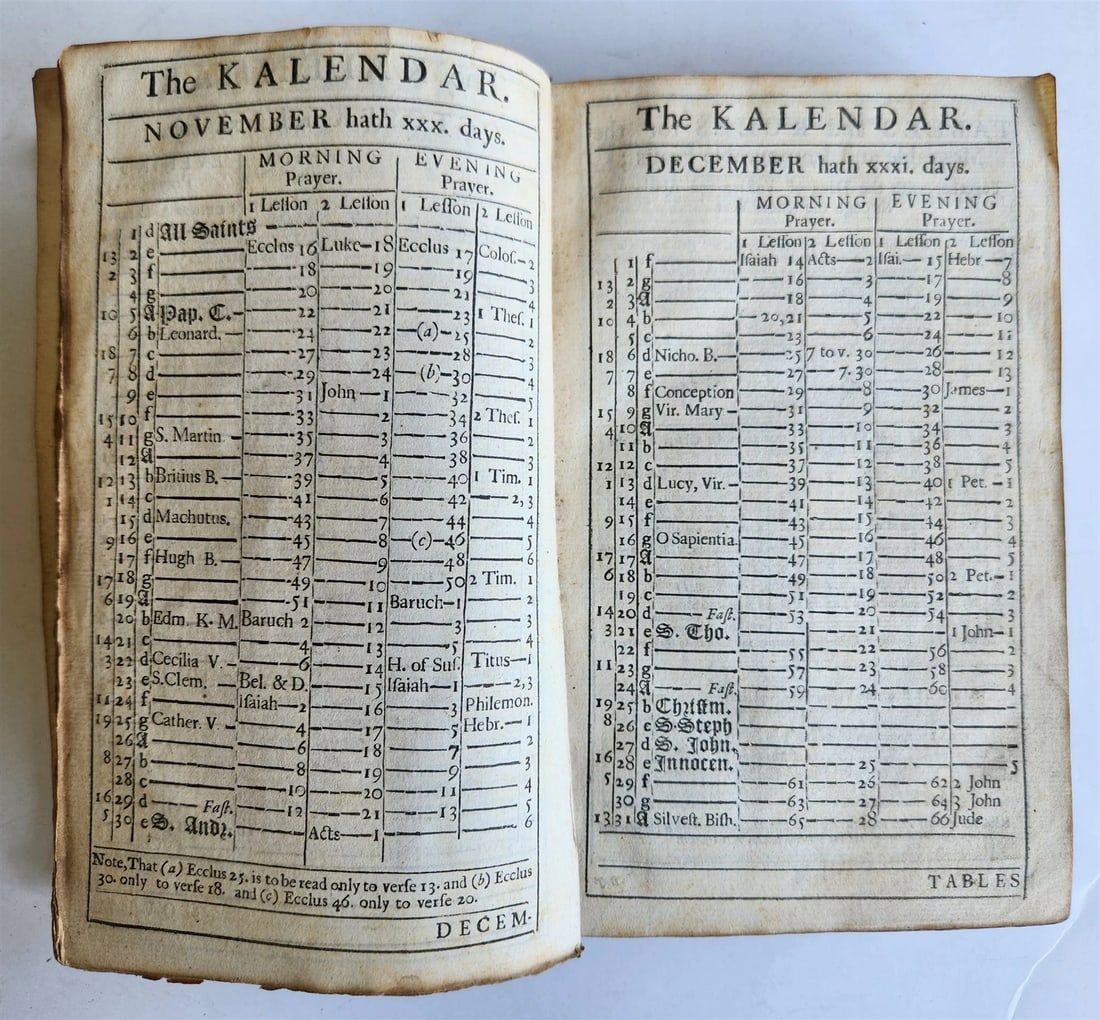 The KALENDAR.
NOVEMBER hath xxx. days.
MORNING Prayer. EVENING Prayer.
1 Leſſon 2 Leſſon 1 Leſſon 2 Leſſon
1 d All Saints
13 2 e Ecclus 16 Luke 18 Ecclus 17 Coloſ. 2
2 3 f 18 19 19 3
4 g 20 20 21 4
10 5 A Pap. C. 22 21 23 1 Theſ. 1
6 b Leonard. 24 22 (a) 25 2
18 7 c 27 23 28 3
7 8 d 29 24 (b) 30 4
9 e 31 John 1 32 5
15 10 f 33 2 34 2 Theſ. 1
4 11 g S. Martin 35 3 36 2
12 A 37 4 38 3
12 13 b Britius B. 39 5 40 1 Tim. 1
1 14 c 41 6 42 2,3
15 d Machutus. 43 7 44 4
9 16 e 45 8 (c) 46 5
17 f Hugh B. 47 9 48 6
17 18 g 49 10 50 2 Tim. 1
6 19 A 51 11 Baruch 1 2
20 b Edm. K. M. Baruch 2 12 3 3
14 21 c 4 13 5 4
3 22 d Cecilia V. 6 14 H. of Suſ. Titus 1
23 e S. Clem. Bel. & D. 15 Iſaiah 1 2,3
11 24 f Iſaiah 2 16 3 Philemon.
19 25 g Cather. V. 4 17 5 Hebr. 1
26 A 6 18 7 2
8 27 b 8 19 9 3
28 c 10 20 11 4
16 29 d Faſt. 12 21 13 5
5 30 e S. Andr. Acts 1 6
Note, That (a) Ecclus 25. is to be read only to verſe 13. and (b) Ecclus
30. only to verſe 18. and (c) Ecclus 46. only to verſe 20.
DECEM-
The KALENDAR.
DECEMBER hath xxxi. days.
MORNING Prayer. EVENING Prayer.
1 Leſſon 2 Leſſon 1 Leſſon 2 Leſſon
1 f Iſaiah 14 Acts 2 Iſai. 15 Hebr 7
13 2 g 16 3 17 8
2 3 A 18 4 19 9
10 4 b 20,21 5 22 10
5 c 23 6 24 11
18 6 d Nicho. B. 25 7 to v. 30 26 12
7 7 e 27 7. 30 28 13
8 f Conception 29 8 30 James 1
15 9 g Vir. Mary 31 9 32 2
4 10 A 33 10 34 3
11 b 35 11 36 4
12 12 c 37 12 38 5
1 13 d Lucy, Vir. 39 13 40 1 Pet. 1
14 e 41 14 42 2
9 15 f 43 15 44 3
16 g O Sapientia. 45 16 46 4
17 17 A 47 17 48 5
6 18 b 49 18 50 2 Pet. 1
19 c 51 19 52 2
14 20 d Faſt. 53 20 54 3
3 21 e S. Tho. 21 1 John 1
22 f 55 22 56 2
11 23 g 57 23 58 3
24 A Faſt. 59 24 60 4
19 25 b Chriſtm.
8 26 c S. Steph
27 d S. John.
16 28 e Innocen. 25 5
5 29 f 61 26 62 2 John
30 g 63 27 64 3 John
13 31 A Silveſt. Biſh. 65 28 66 Jude
TABLES